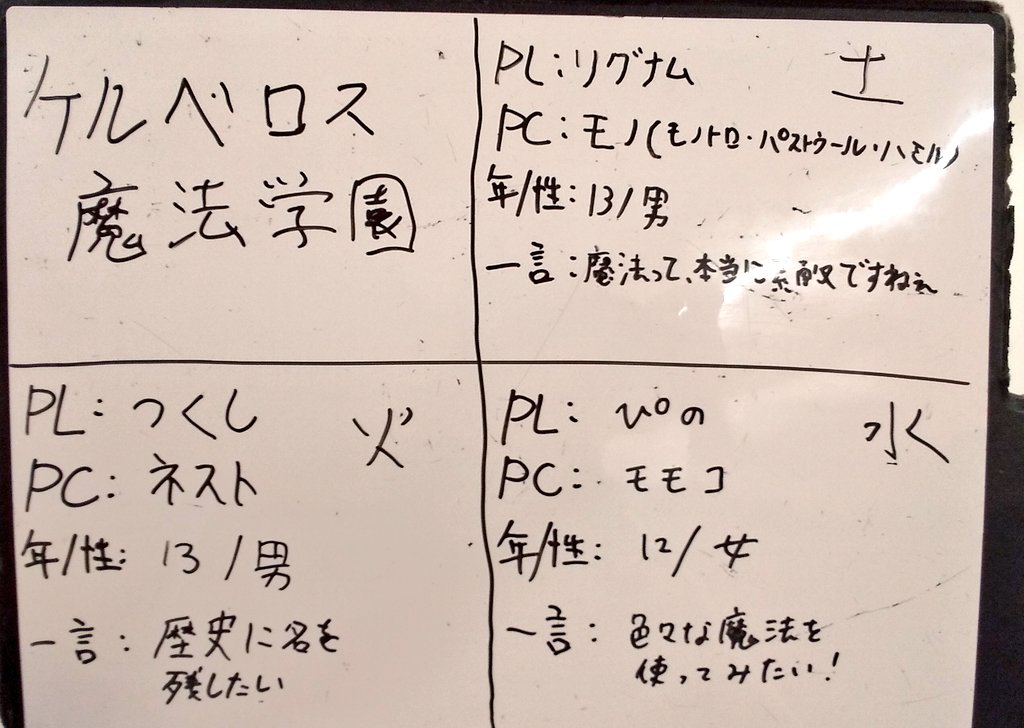 ケルベロス
魔法学園
PL:リグナム
土
PC:モノ(モノトロ・パストゥール・ハミル)
年/性:13/男
一言:魔法って、本当に素敵ですねぇ
PL:つくし
火
PC:ネスト
年/性:13/男
一言:歴史に名を
残したい
PL:ぴの
水
PC:モモコ
年/性:12/女
一言:色々な魔法を
使ってみたい!